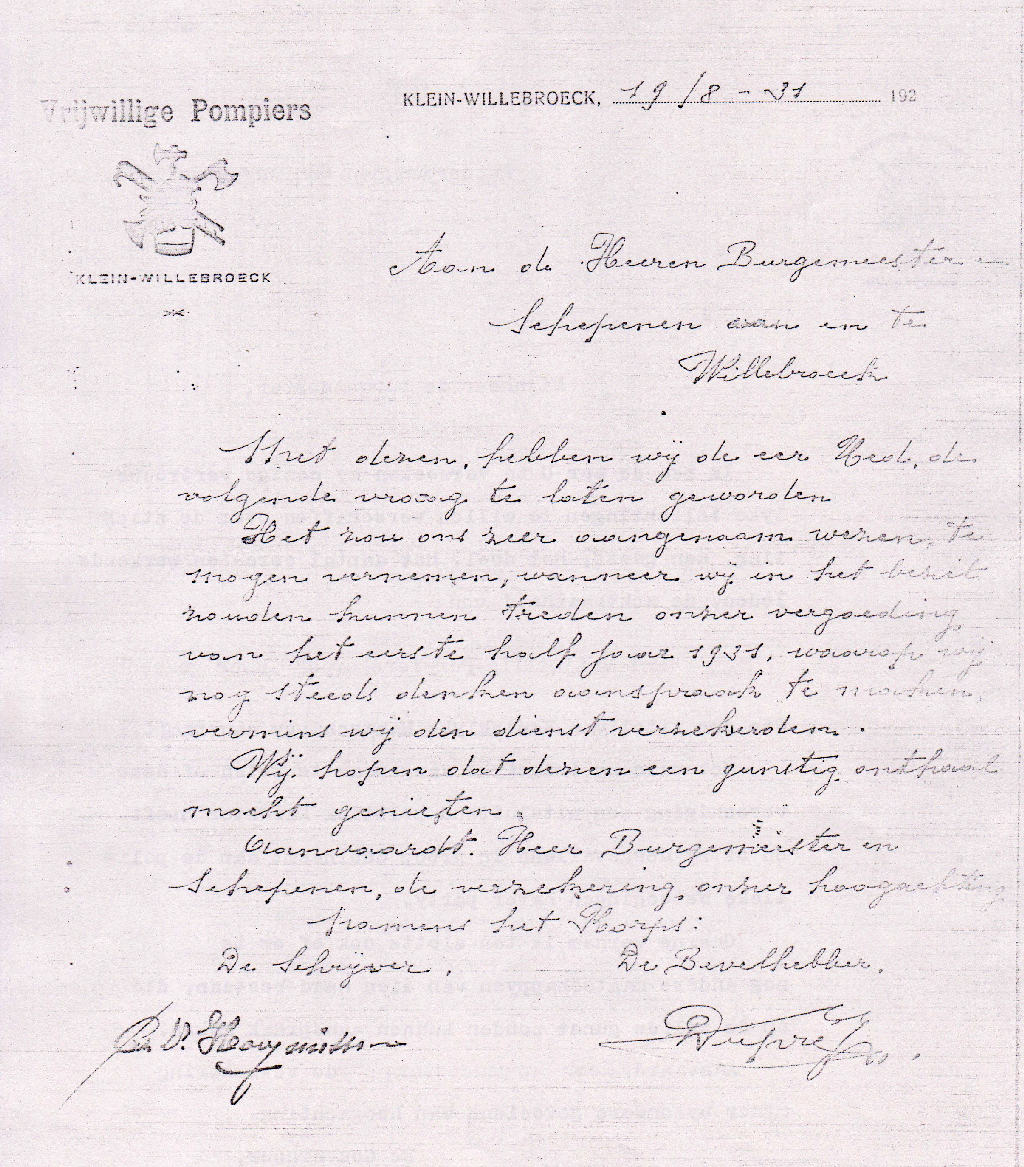 Vrijwillige Pompiers
KLEIN-WILLEBROECK, 19/8-31 192
KLEIN-WILLEBROECK
Aan de Heeren Burgemeester en
Schepenen van en te
Willebroeck
Met dezen, hebben wij de eer UEd, de
volgende vraag te laten geworden
Het zou ons zeer aangenaam wezen, te
mogen vernemen, wanneer wij in het bezit
zouden kunnen treden onzer vergoeding
van het eerste half jaar 1931, waarop wij
nog steeds denken aanspraak te maken,
vermits wij den dienst verzekerden.
Wij hopen dat dezen een gunstig onthaal
mocht genieten.
Aanvaardt. Heer Burgemeister en
Schepenen, de verzekering, onzer hoogachting
Namens het Korps:
De Schrijver. De Bevelhebber.